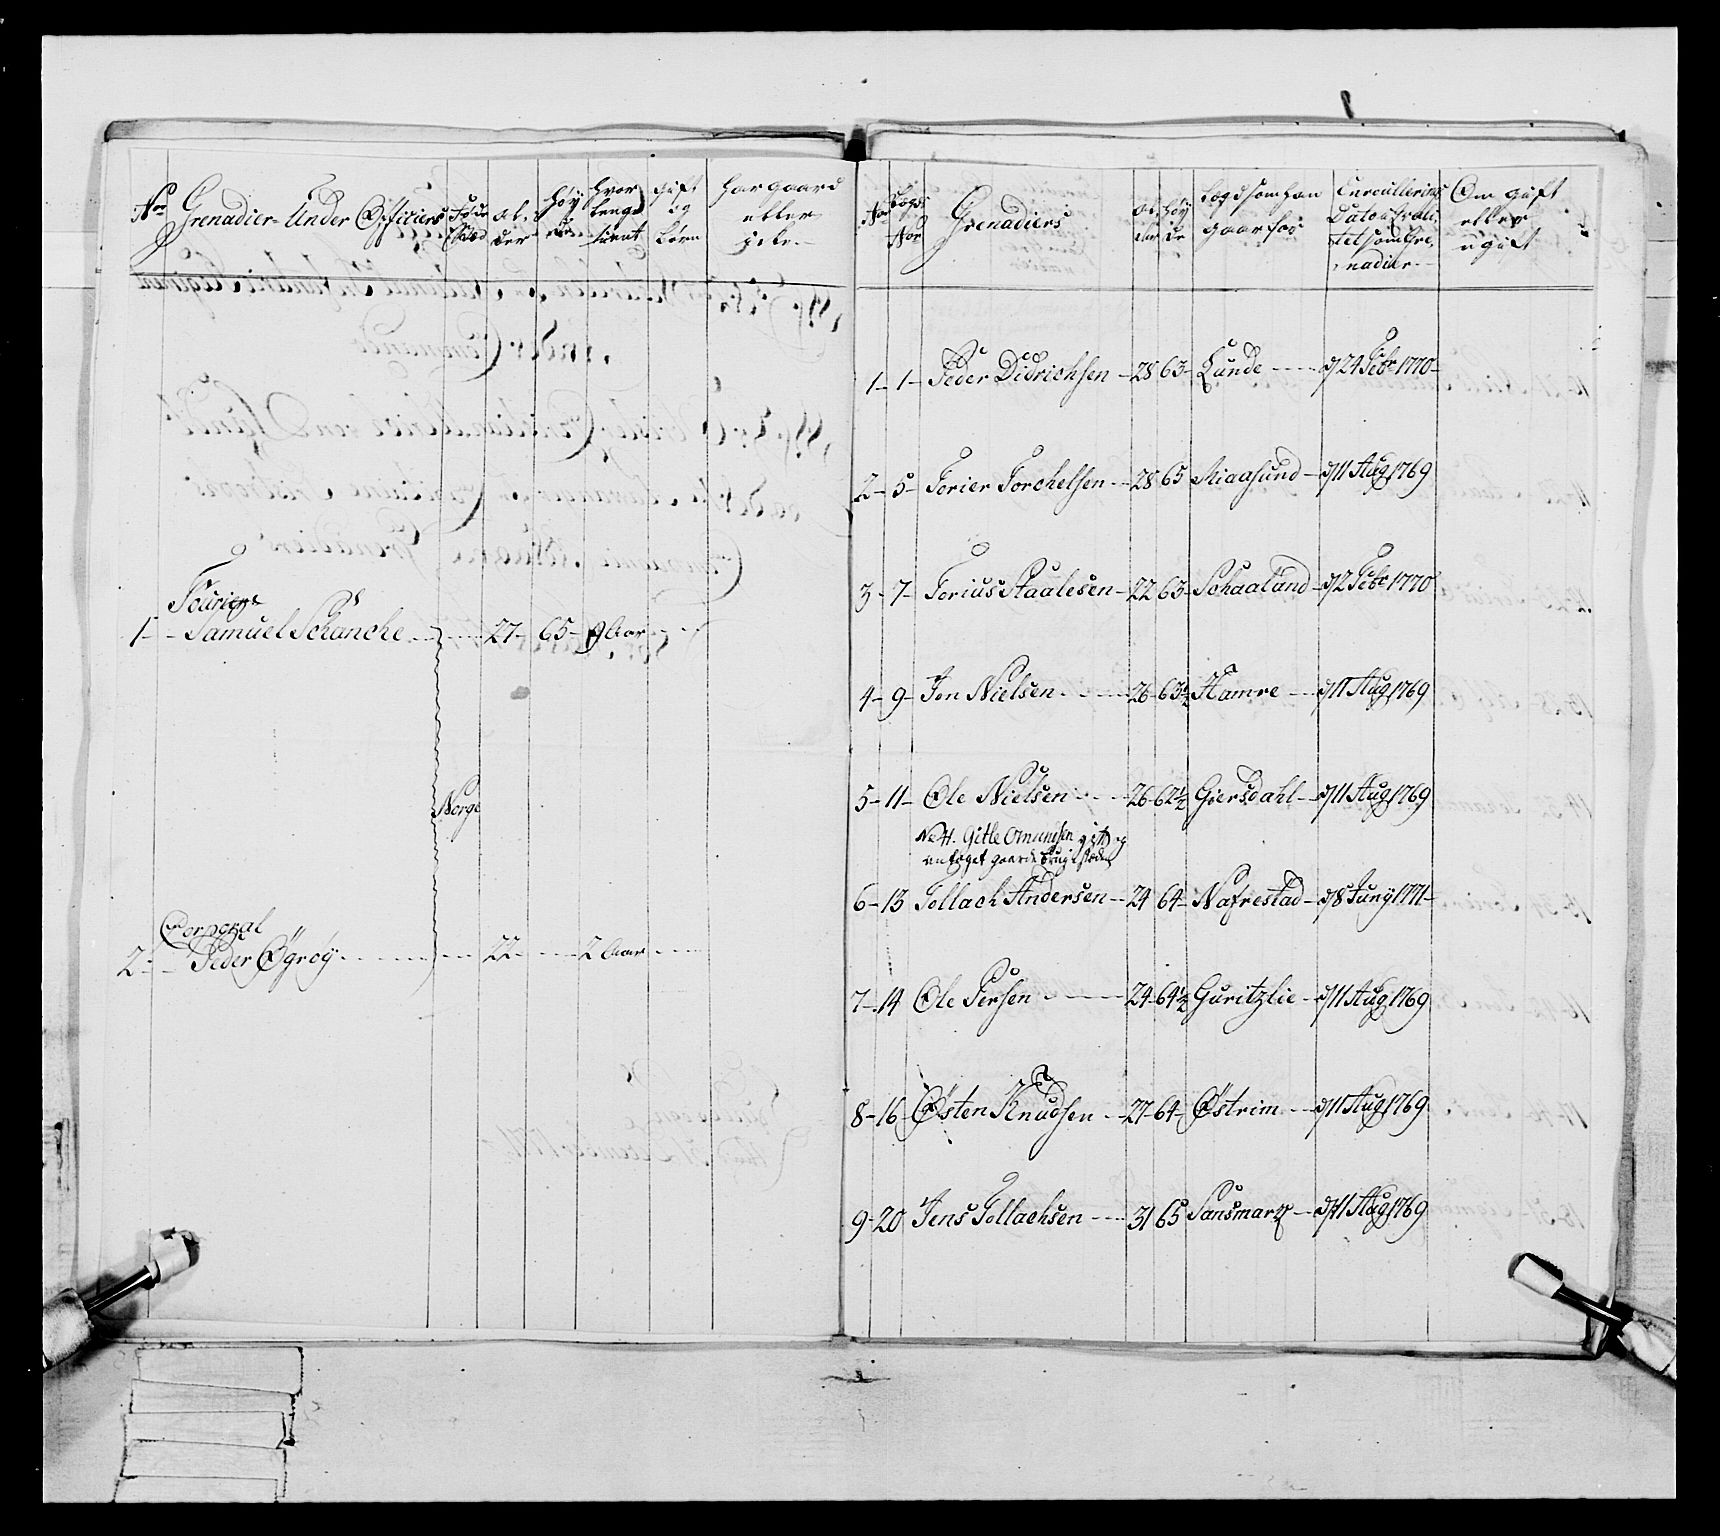 No
Grenadier-Under Officiers
Føde Stæd
Al-der
Høy de
Hvor lenge tient
Gift og børn
Har gaard eller icke
Fourier
1 - Samuel Schancke - 27 - 65 - 9 Aar
Norge
Corporal
2 - Peder Øgrey - 22 - 2 Aar
No
Lægds No
Grenadiers
Al der
Høy de
Lægd som han gaar for
Enroullerings Dato i qvalitet som Grenadier
Om gift eller ugift
1 - 1 - Peder Didrichsen - 28 63 - Lunde - d 24 Febr 1770
2 - 5 - Torier Torchelsen - 28 65 Miaasund - d 11 Aug 1769
3 - 7 - Torius Staalesen - 22 63 - Schaaland - d 2 Febr 1770
4 - 9 - Jon Nielsen - 26 - 63½ Hamre - d 11 Aug 1769
5 - 11 - Ole Nielsen - 26 - 62½ Giersdahl - d 11 Aug 1769
No 4. Gitle Omundsen gift og
antaget gaards brug i steden
6 - 13 Tollach Andersen - 24 64 - Nafrestad - d 8 Juny 1771
7 - 14 Ole Persen - 24 - 64½ Guritzlie - d 11 Aug 1769
8 - 16 Østen Knudsen - 27 - 64 - Østrim - d 11 Aug 1769
9 - 20 Jens Tollachsen - 31 65 Sansmarg - d 11 Aug 1769